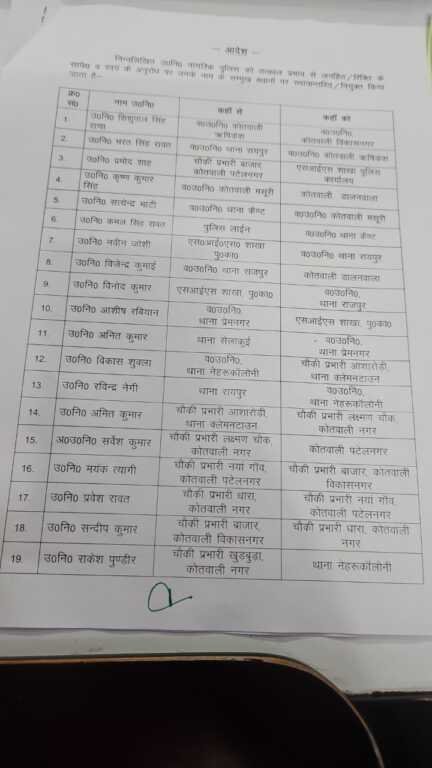 – आदेश –
निम्नलिखित उ0नि0 नागरिक पुलिस को तत्काल प्रभाव से जनहित/रिक्ति के
सापेक्ष व स्वयं के अनुरोध पर उनके नाम के सम्मुख स्थानों पर स्थानान्तरित/नियुक्त किया
जाता है–
क्र0 सं0 नाम उ0नि0 कहाँ से कहाँ को
1. उ0नि0 शिशुपाल सिंह राणा व0उ0नि0 कोतवाली ऋषिकेश व0उ0नि0, कोतवाली विकासनगर
2. उ0नि0 भरत सिंह रावत व0उ0नि0 थाना रायपुर व0उ0नि0 कोतवाली ऋषिकेश
3. उ0नि0 प्रमोद शाह चौकी प्रभारी बाजार, कोतवाली पटेलनगर एसआईएस शाखा पुलिस कार्यालय
4. उ0नि0 कृष्ण कुमार सिंह व0उ0नि0 कोतवाली मसूरी कोतवाली डालनवाला
5. उ0नि0 सत्येन्द्र भाटी व0उ0नि0 थाना कैण्ट व0उ0नि0 कोतवाली मसूरी
6. उ0नि0 कमल सिंह रावत पुलिस लाईन व0उ0नि0 थाना कैण्ट
7. उ0नि0 नवीन जोशी एस0आई0एस0 शाखा पु0का0 व0उ0नि0 थाना रायपुर
8. उ0नि0 विजेन्द्र कुमाई व0उ0नि0 थाना राजपुर कोतवाली डालनवाला
9. उ0नि0 विनोद कुमार एसआईएस शाखा, पु0का0 व0उ0नि0, थाना राजपुर
10. उ0नि0 आशीष रबियान व0उ0नि0, थाना प्रेमनगर एसआईएस शाखा, पु0का0
11. उ0नि0 अनित कुमार थाना सेलाकुई व0उ0नि0, थाना प्रेमनगर
12. उ0नि0 विकास शुक्ला व0उ0नि0, थाना नेहरूकॉलोनी चौकी प्रभारी आशारोड़ी, थाना क्लेमनटाउन
13. उ0नि0 रविन्द्र नेगी थाना रायपुर व0उ0नि0, थाना नेहरूकॉलोनी
14. उ0नि0 अमित कुमार चौकी प्रभारी आशारोड़ी, थाना क्लेमनटाउन चौकी प्रभारी लक्ष्मण चौक, कोतवाली नगर
15. अ0उ0नि0 सर्वेश कुमार चौकी प्रभारी लक्ष्मण चौक, कोतवाली नगर कोतवाली पटेलनगर
16. उ0नि0 मयंक त्यागी चौकी प्रभारी नयां गाँव, कोतवाली पटेलनगर चौकी प्रभारी बाजार, कोतवाली विकासनगर
17. उ0नि0 प्रवेश रावत चौकी प्रभारी धारा, कोतवाली नगर चौकी प्रभारी नयां गाँव, कोतवाली पटेलनगर
18. उ0नि0 सन्दीप कुमार चौकी प्रभारी बाजार, कोतवाली विकासनगर चौकी प्रभारी धारा, कोतवाली नगर
19. उ0नि0 राकेश पुण्डीर चौकी प्रभारी खुड़बुड़ा, कोतवाली नगर थाना नेहरूकॉलोनी